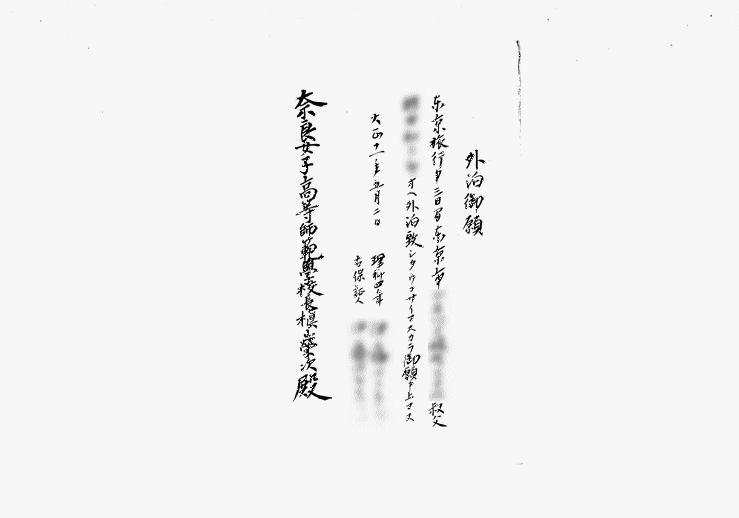 外泊御願
東京旅行中三日間東京市
叔父
方ヘ外泊致シタウゴザイマスカラ御願申上マス
大正十一年五月二日
理科四年
右保証人
奈良女子高等師範學校長槇山榮次殿